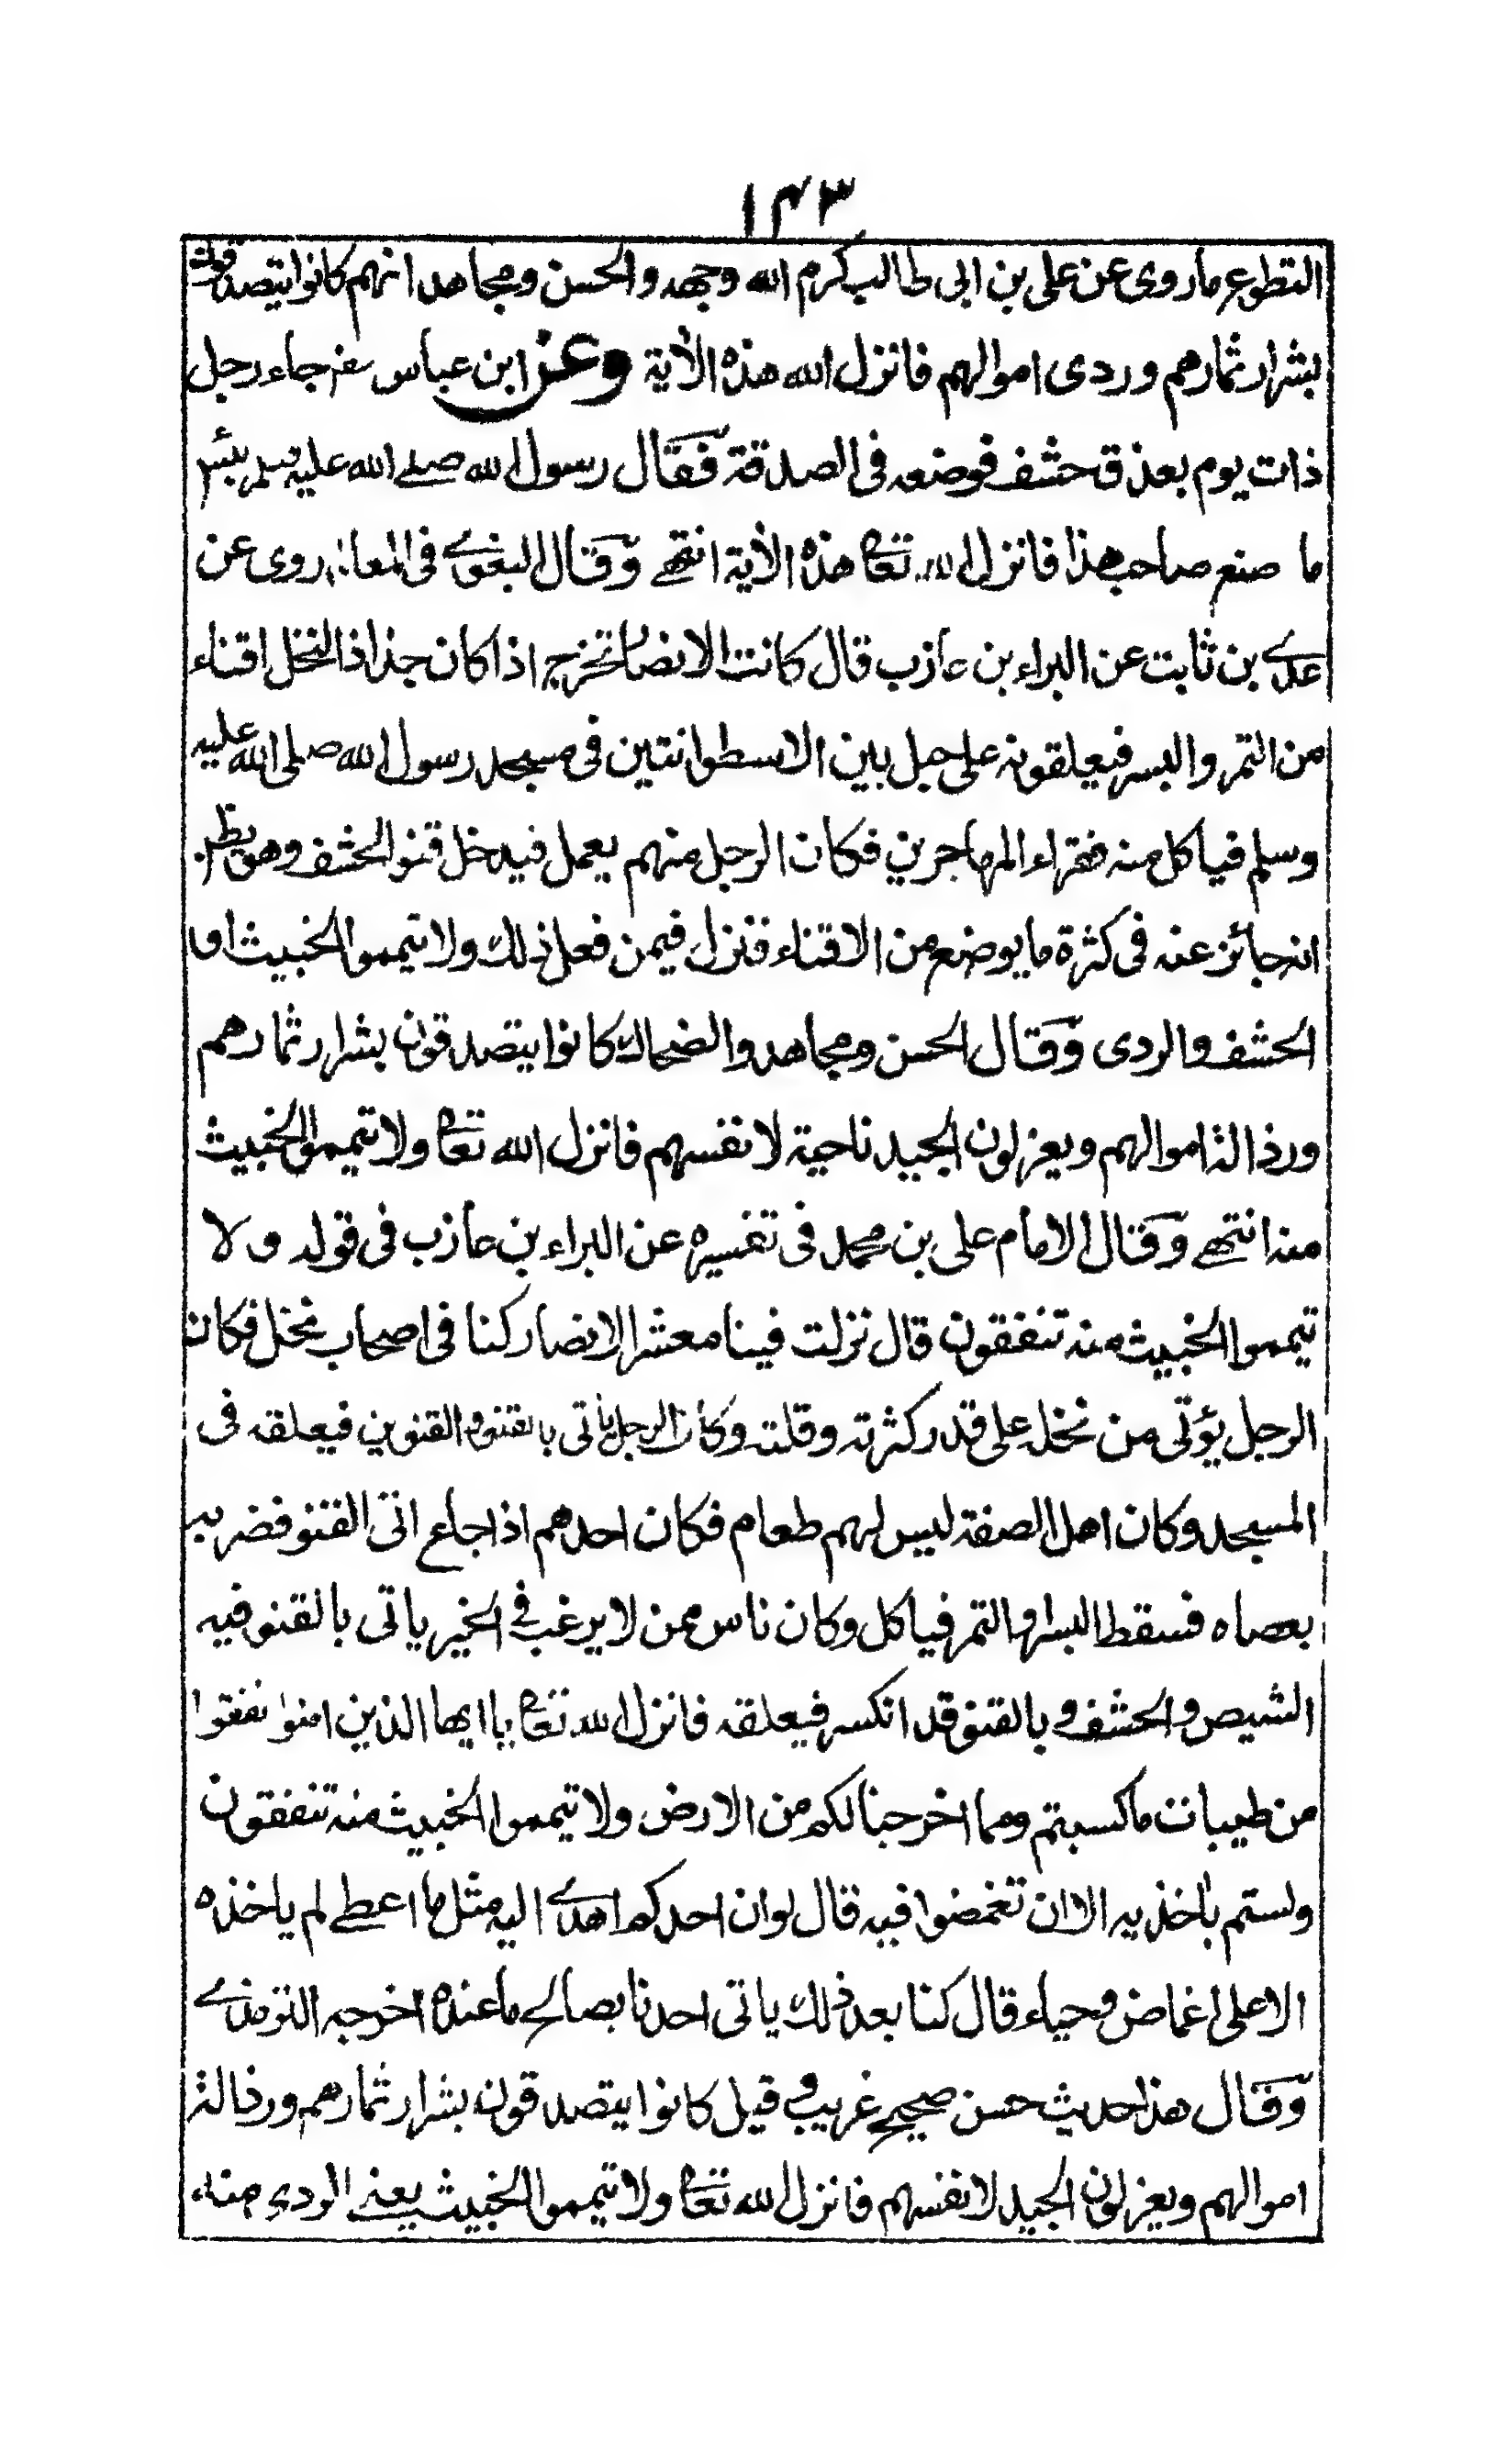 ١٤٣
التطوع ما روى عن على بن ابى طالب كرم الله وجهه والحسن ومجاهد انهم كانوا يتصدقون
بشرار ثمارهم وردى اموالهم فانزل الله هذه الأية وعن ابن عباس رضـ جاء رجل
ذات يوم بعذق حشف فوضعه فى الصدقة فقال رسول الله صلے الله عليه وسلم بئس
ما صنع صاحب هذا فانزل الله تعالى هذه الأية انتهے وقال البغوے فى المعالم روى عن
عدے بن ثابت عن البراء بن عازب قال كانت الانصار تخرج اذا كان جذاذ النخل اقناء
من التمر والبسر فيعلقونه على حبل بين الاسطوانتين فى مسجد رسول الله صلى الله عليه
وسلم فياكل منه فقراء المهاجرين فكان الرجل منهم يعمل فيدخل قنو الحشف وهو يظن
انه جائز عنه فى كثرة ما يوضع من الاقناء فنزل فيمن فعل ذلك ولا تيمموا الخبيث اى
الحشف والردى وقال الحسن ومجاهد والضحاك كانوا يتصدقون بشرار ثمارهم
ورذالة اموالهم ويعزلون الجيد ناحية لانفسهم فانزل الله تعالى ولا تيمموا الخبيث
منه انتهے وقال الامام على بن محمد فى تفسيره عن البراء بن عازب فى قوله ولا
تيمموا الخبيث منه تنفقون قال نزلت فينا معشر الانصار كنا فى اصحاب نخل فكان
الرجل يؤتى من نخله على قدر كثرته وقلته وكان الرجل ياتى بالقنو والقنوين فيعلقه فى
المسجد وكان اهل الصفة ليس لهم طعام فكان احدهم اذا جاع اتى القنو فضربه
بعصاه فسقط البسر والتمر فياكل وكان ناس ممن لا يرغب فے الخير ياتى بالقنو فيه
الشيص والحشف و بالقنو قد انكسر فيعلقه فانزل الله تعالى يا ايها الذين امنوا انفقوا
من طيبات ما كسبتم ومما اخرجنا لكم من الارض ولا تيمموا الخبيث منه تنفقون
ولستم باخذيه الا ان تغمضوا فيه قال لو ان احدكم اهدے اليه مثل ما اعطے لم ياخذه
الا على اغماض وحياء قال كنا بعد ذلك ياتى احدنا بصالح ما عنده اخرجه الترمذے
وقال هذا حديث حسن صحيح غريب و قيل كانوا يتصدقون بشرار ثمارهم ورذالة
اموالهم ويعزلون الجيد لانفسهم فانزل الله تعالى ولا تيمموا الخبيث يعنے الردى منه